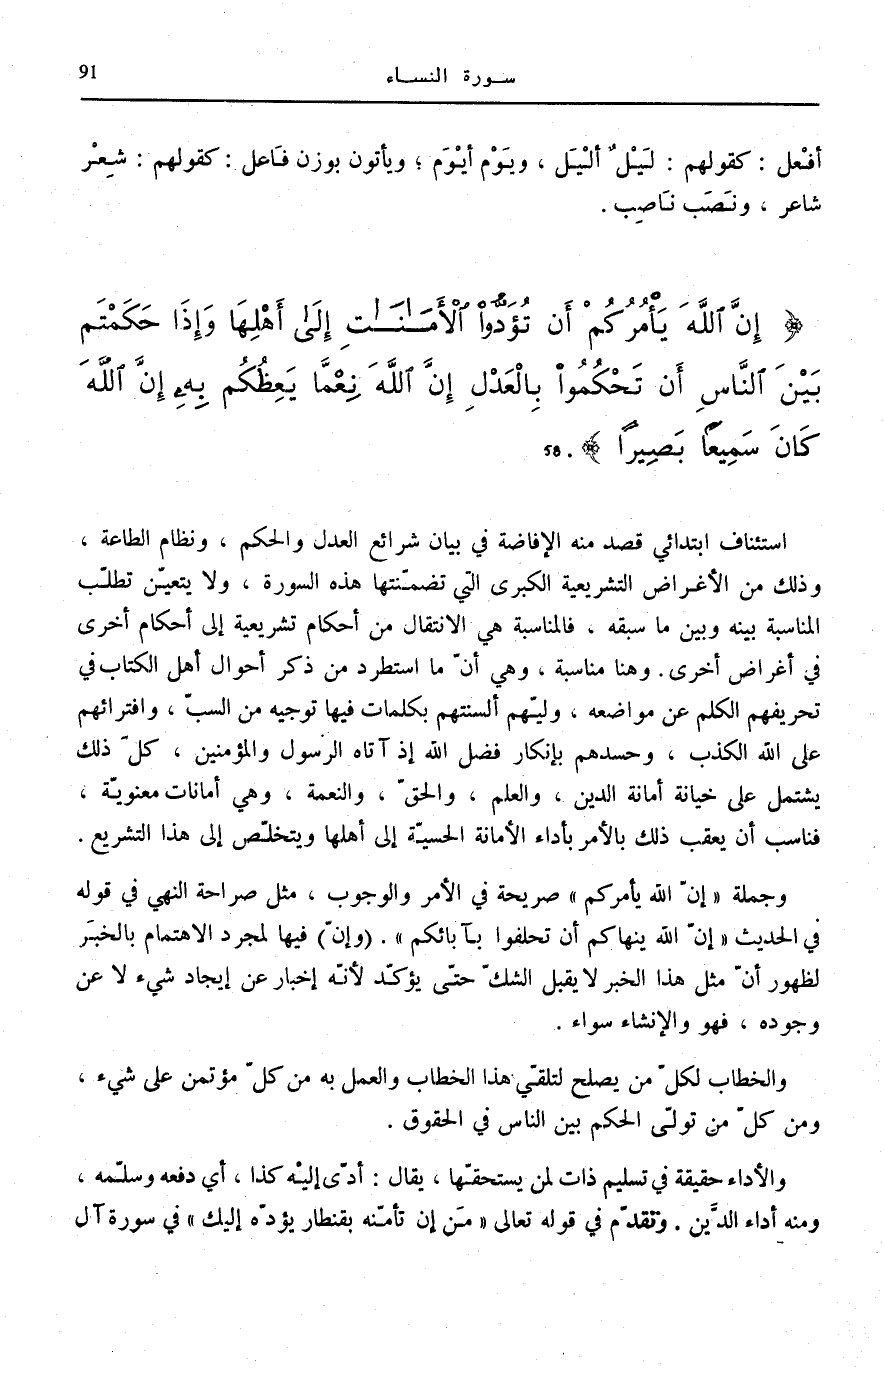 سورة النساء 91
أفْعل : كقولهم : لَيْلٌ ألْيَل ، ويَوْم أيْوَم ؛ ويأتون بوزن فَاعل : كقولهم : شِعْر
شاعر ، ونَصَب نَاصِب .
﴿ إِنَّ ٱللَّهَ يَأْمُرُكُمْ أَن تُؤَدُّواْ ٱلْأَمَـٰنَـٰتِ إِلَىٰ أَهْلِهَا وَإِذَا حَكَمْتُم
بَيْنَ ٱلنَّاسِ أَن تَحْكُمُواْ بِالْعَدْلِ إِنَّ ٱللَّهَ نِعْمَّا يَعِظُكُم بِهِۦ إِنَّ ٱللَّهَ
كَانَ سَمِيعًا بَصِيرًا ﴾ . 58
استئناف ابتدائي قصد منه الإفاضة في بيان شرائع العدل والحكم ، ونظام الطاعة ،
وذلك من الأغراض التشريعية الكبرى الّتي تضمـّنتها هذه السورة ، ولا يتعيـّن تطلـّب
المناسبة بينه وبين ما سبقه ، فالمناسبة هي الانتقال من أحكام تشريعية إلى أحكام أخرى
في أغراض أخرى . وهنا مناسبة ، وهي أنّ ما استطرد من ذكر أحوال أهل الكتاب في
تحريفهم الكلم عن مواضعه ، وليـّهم ألسنتهم بكلمات فيها توجيه من السبّ ، وافترائهم
على الله الكذب ، وحسدهم بإنكار فضل الله إذ آتاه الرسول والمؤمنين ، كلّ ذلك
يشتمل على خيانة أمانة الدين ، والعلم ، والحقّ ، والنعمة ، وهي أمانات معنويـّة ،
فناسب أن يعقب ذلك بالأمر بأداء الأمانة الحسيـّة إلى أهلها ويتخلـّص إلى هذا التشريع .
وجملة « إنّ الله يأمركم » صريحة في الأمر والوجوب ، مثل صراحة النهي في قوله
في الحديث « إنّ الله ينهاكم أن تحلفوا بـآبائكم » . (وإنّ) فيها لمجرد الاهتمام بالخبَر
لظهور أنّ مثل هذا الخبر لا يقبل الشكّ حتـّى يؤكـّد لأنـّه إخبار عن إيجاد شيء لا عن
وجوده ، فهو والإنشاء سواء .
والخطاب لكلّ من يصلح لتلقـّي هذا الخطاب والعمل به من كلّ مؤتمن على شيء ،
ومن كلّ من تولـّى الحكم بين الناس في الحقوق .
والأداء حقيقة في تسليم ذات لمن يستحقـّها ، يقال : أدّى إليْه كذا ، أي دفعه وسلـّمه ،
ومنه أداء الدَّين . وتقدّم في قوله تعالى « مَن إن تأمـَنه بقنطار يؤدّه إليك » في سورة آل